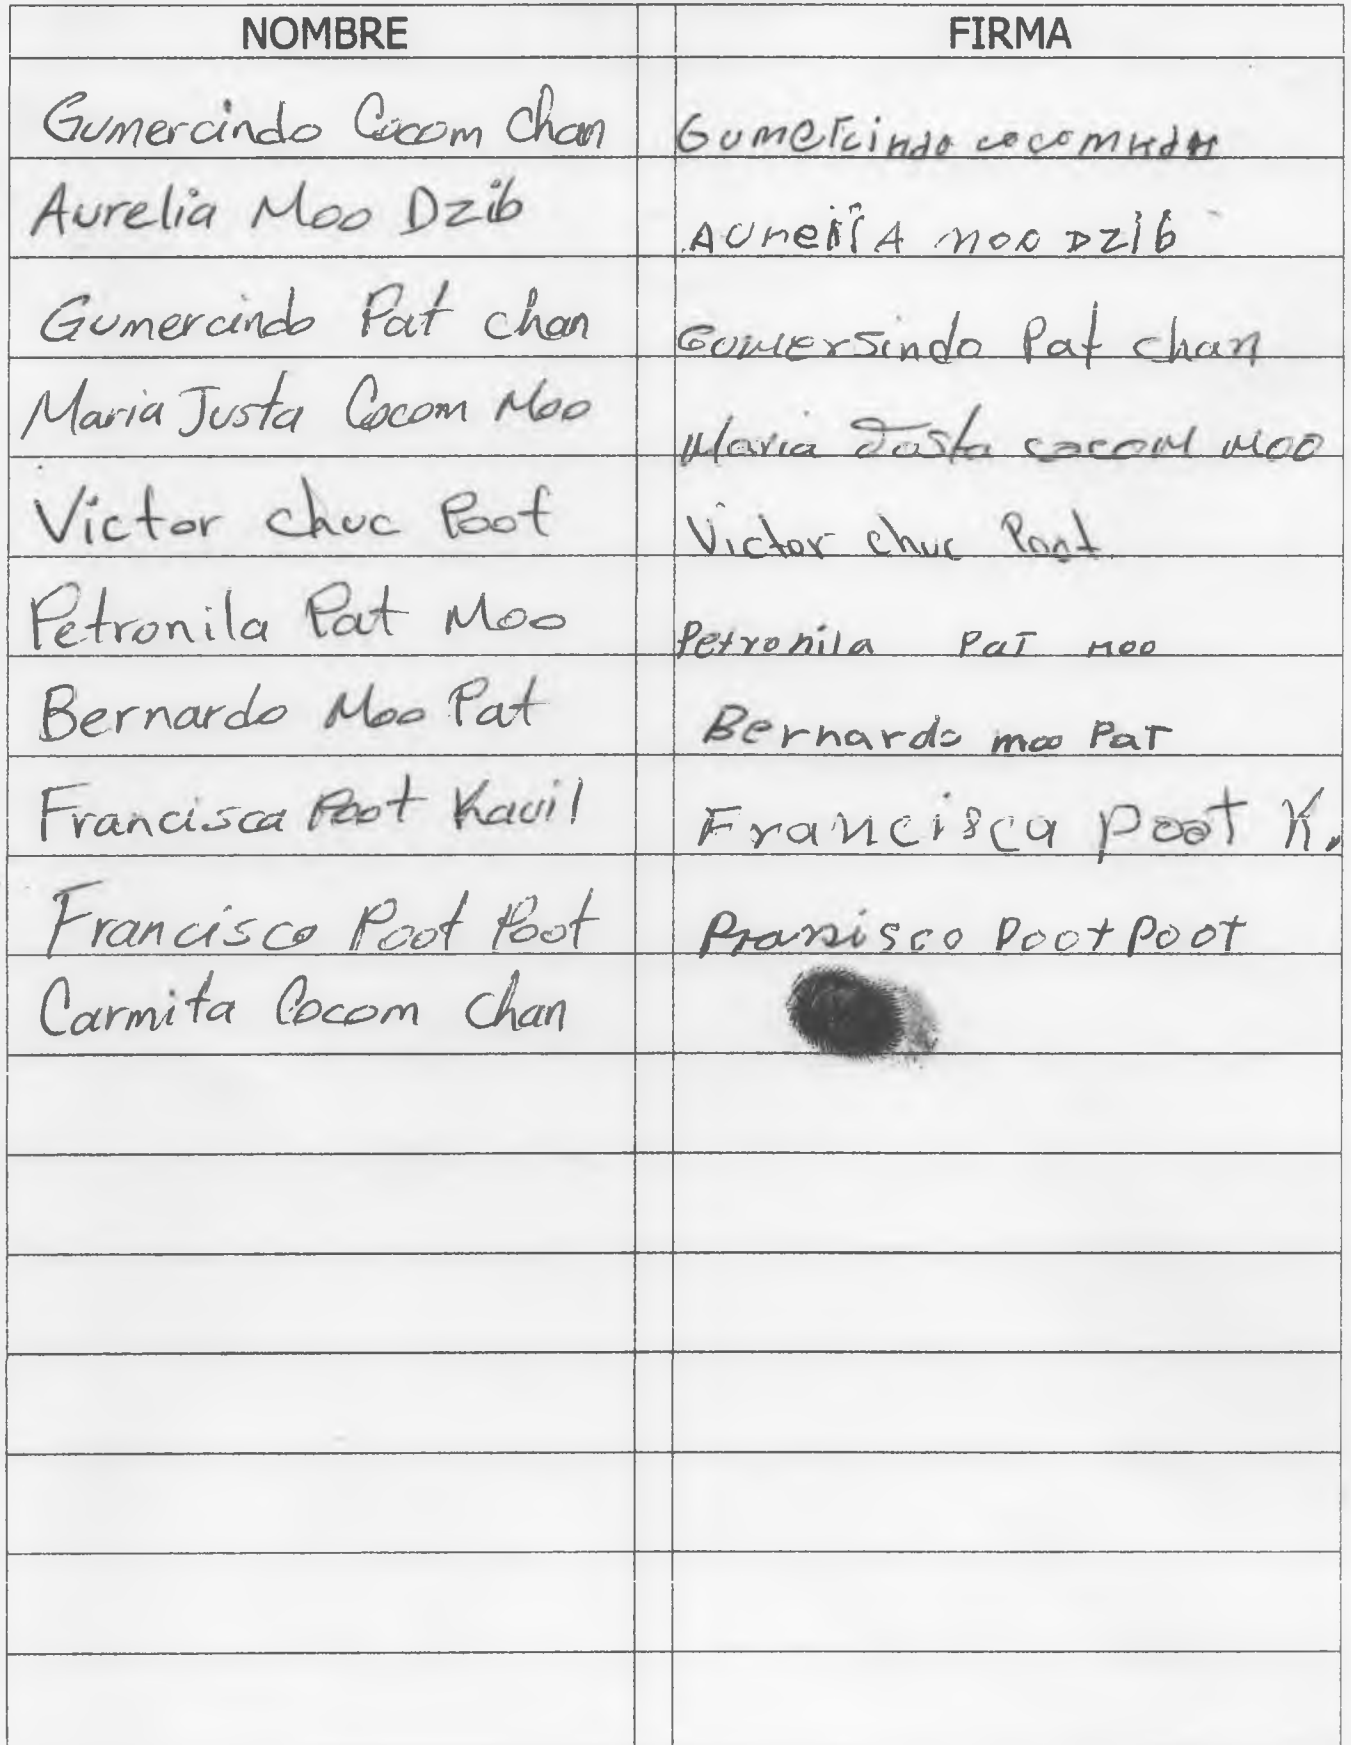 NOMBRE FIRMA
Gumercindo Cocom Chan Gumercindo cocom
Aurelia Moo Dzib Aurelia moo Dzib
Gumercindo Pat chan Gumersindo Pat chan
Maria Justa Cocom Moo Maria Justa cocom Moo
Victor chuc Poot Victor chuc Poot
Petronila Pat Moo Petronila Pat Moo
Bernardo Moo Pat Bernardo moo Pat
Francisca Poot Kauil Francisca Poot K.
Francisco Poot Poot Fransisco Poot Poot
Carmita Cocom Chan